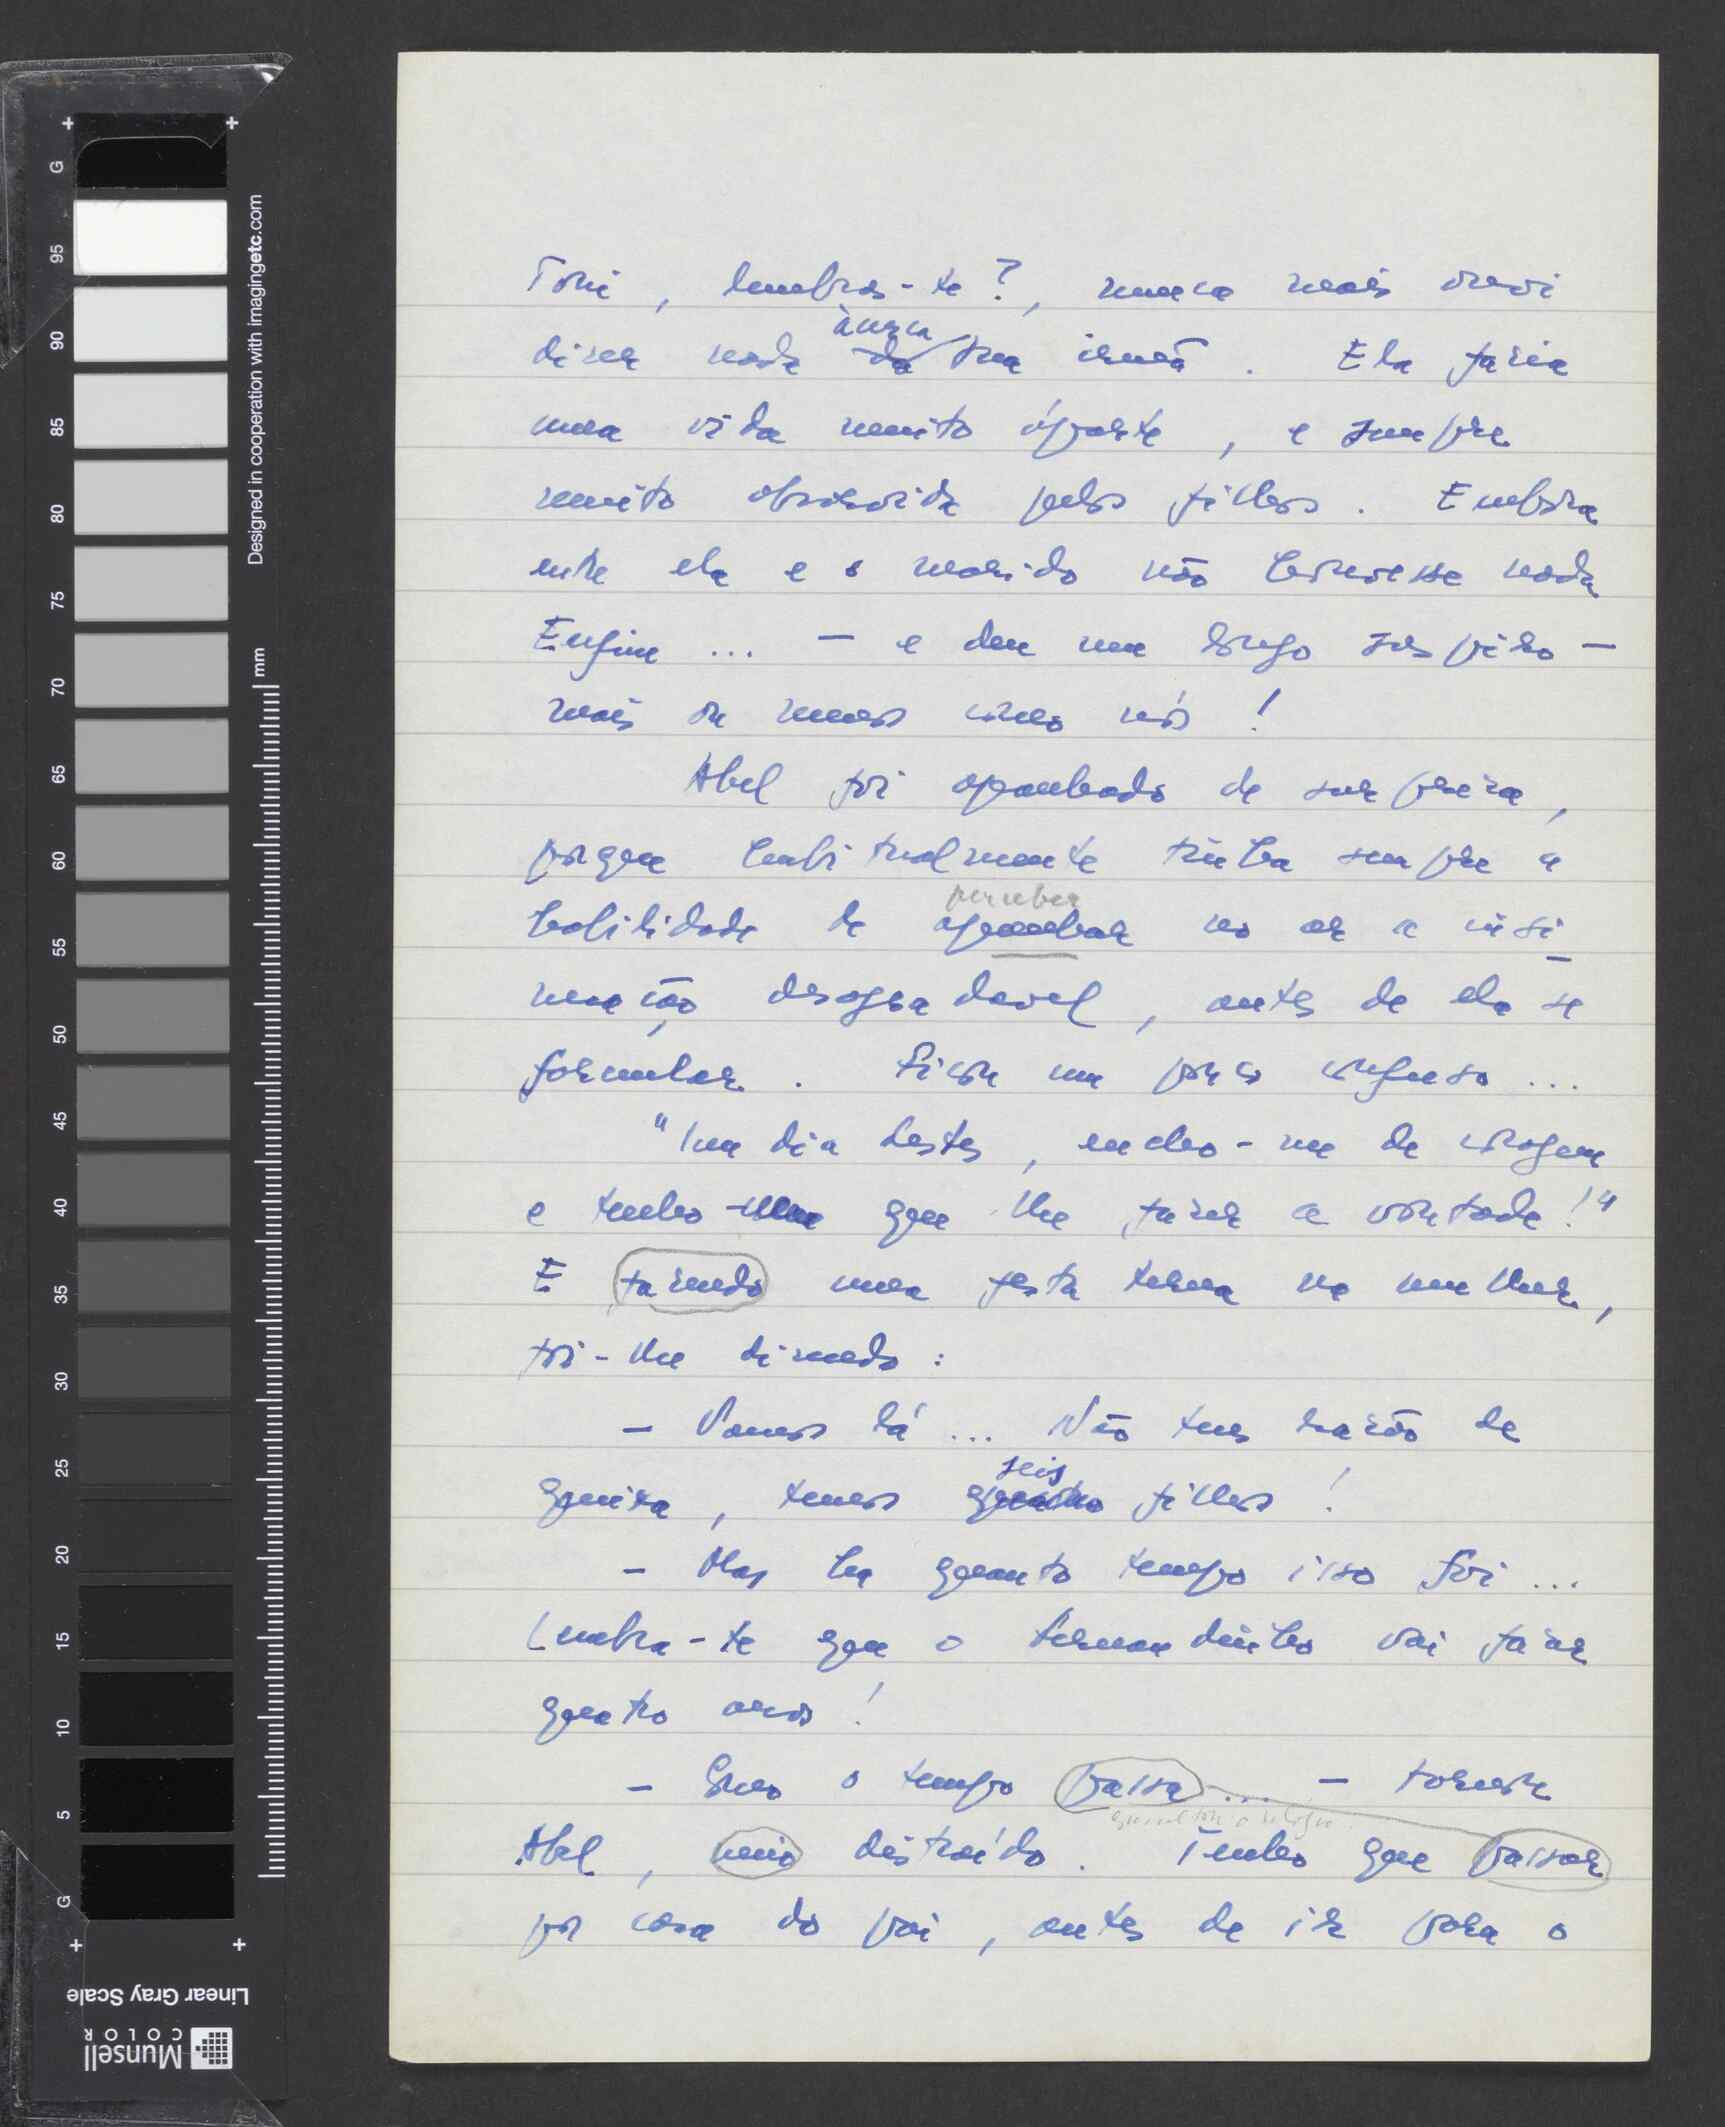 Toni, lembras-te?, nunca mais ouvi
dizer nada àcerca da tua irmã. Ela fazia
uma vida muito àparte, e sempre
muito absorvida pelos filhos. Embora
entre ela e o marido não houvesse nada
Enfim ... — e deu um longo suspiro —
mais ou menos como nós!
Abel foi apanhado de surpreza,
porque habitualmente tinha sempre a
perceber
habilidade de apanhar no ar a insi-
nuação desagradavel, antes de ela se
formular. Ficou um pouco confuso ...
"Um dia destes, encho-me de coragem
e tenho que lhe fazer a vontade!"
E fazendo uma festa terna na mulher,
foi-lhe dizendo:
— Vamos lá ... Não tens razão de
seis
queixa, temos quatro filhos!
— Mas ha quanto tempo isso foi ...
Lembra-te que o Fernandinho vai fazer
quatro anos!
— Como o tempo passa ... — tornou
Abel, meio distraído. Tenho que passar
por casa do pai, antes de ir para o
G 95 90 85 80 75 70 65 60 55 50 45 40 35 30 25 20 15 10 5 G
Designed in cooperation with imagingetc.com
mm
Linear Gray Scale
Munsell
COLOR